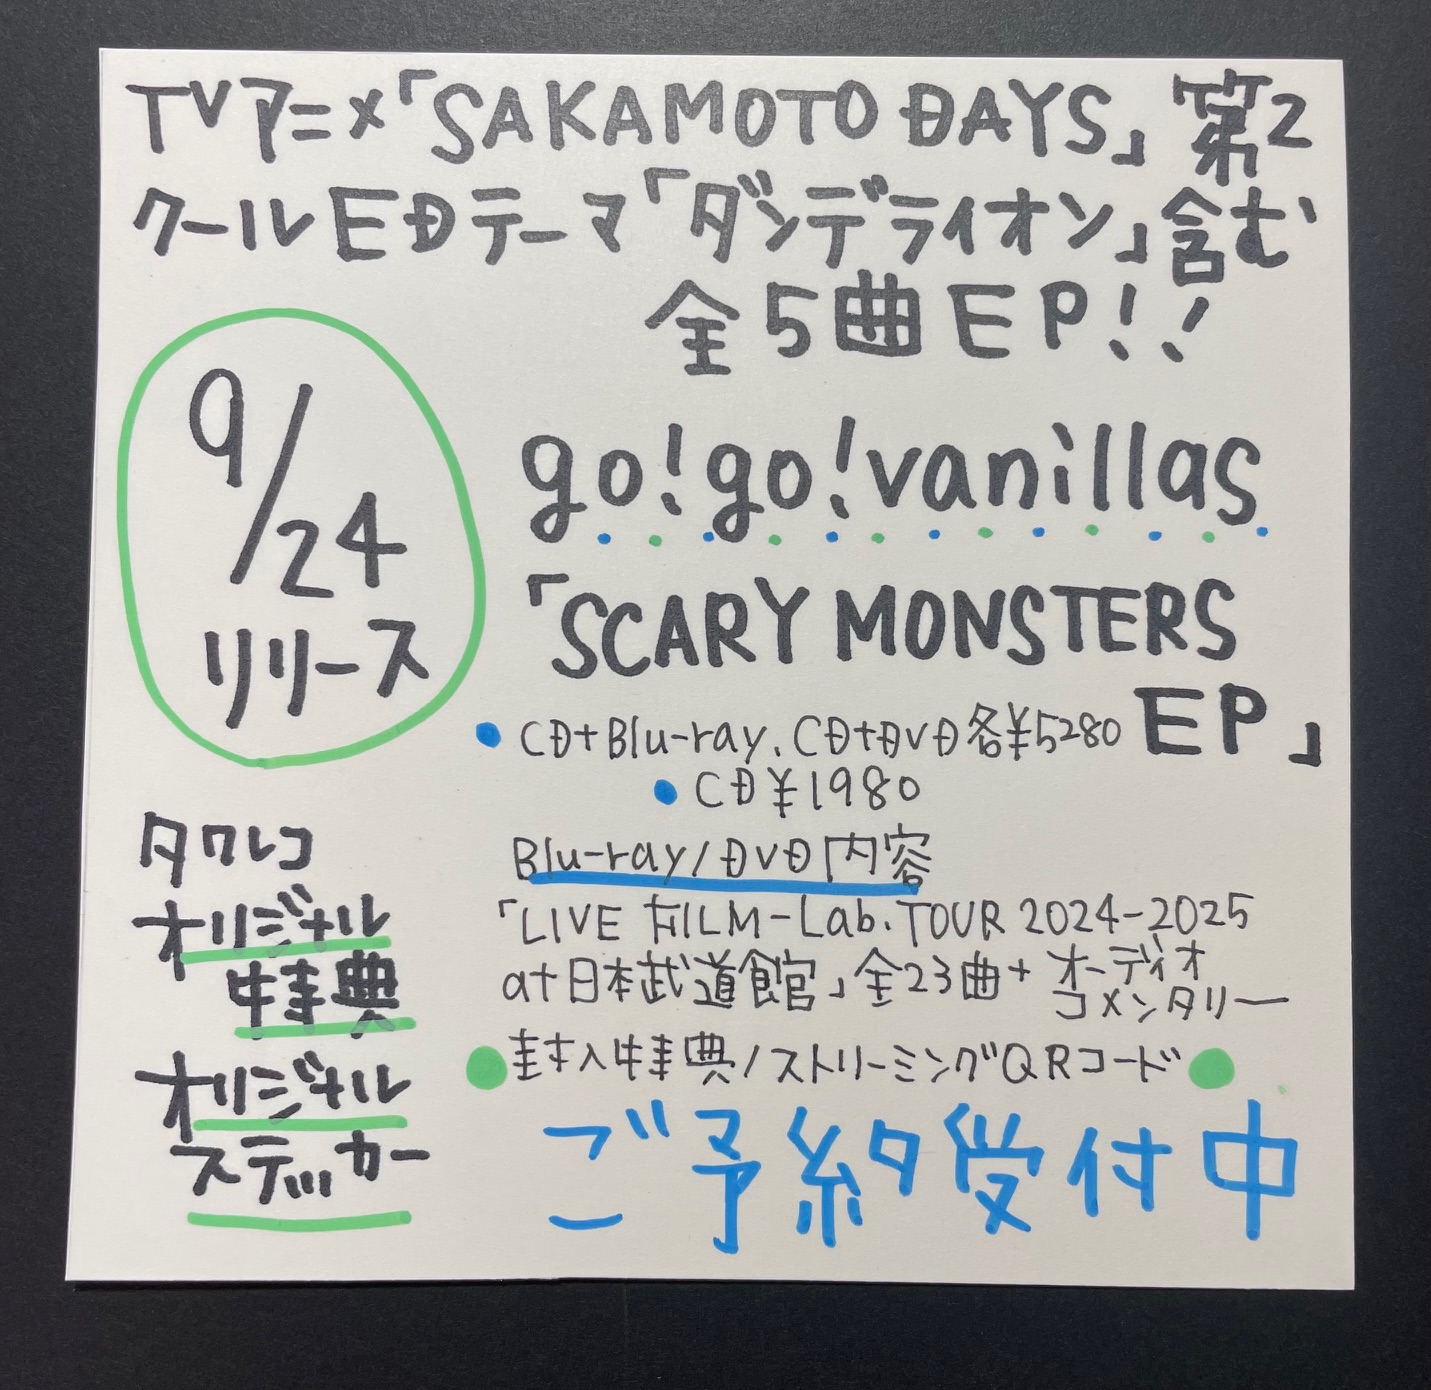 TVアニメ「SAKAMOTO DAYS」第2
クールEDテーマ「ダンデライオン」含む
全5曲EP!!
9/24
リリース
go!go!vanillas
「SCARY MONSTERS
EP」
• CD+Blu-ray、CD+DVD各¥5280
• CD¥1980
Blu-ray/DVD内容
「LIVE FILM-Lab.TOUR 2024-2025
at日本武道館」全23曲+オーディオ
コメンタリー
封入特典/ストリーミングQRコード
タワレコ
オリジナル
特典
オリジナル
ステッカー
ご予約受付中